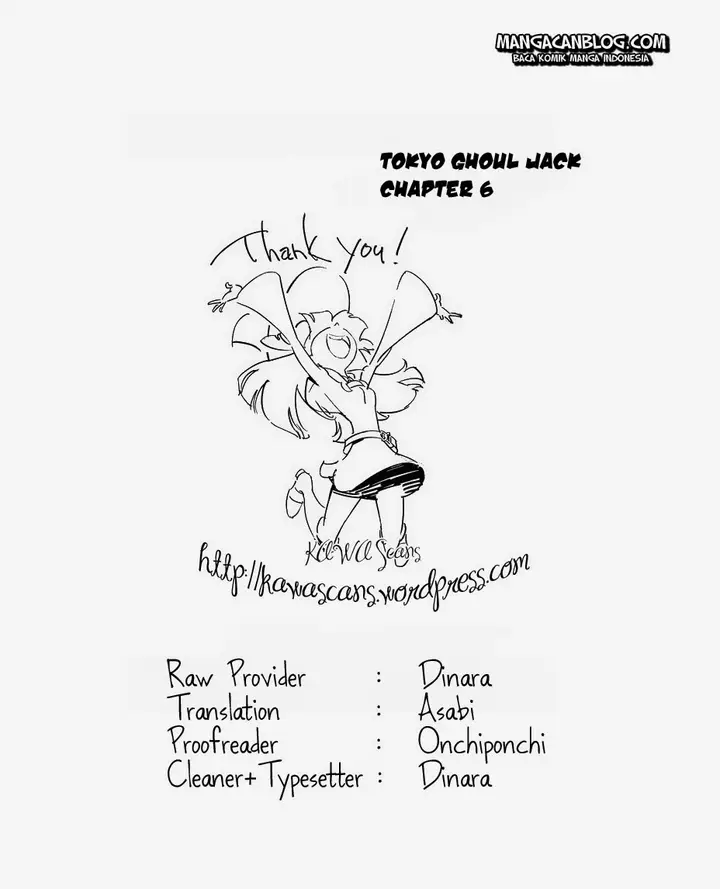 MANGACANBLOG.COM
BACA KOMIK MANGA INDONESIA
TOKYO GHOUL JACK
CHAPTER 6
Thank you!
KAWA Scans
http://kawascans.wordpress.com
Raw Provider : Dinara
Translation : Asabi
Proofreader : Onchiponchi
Cleaner+Typesetter : Dinara